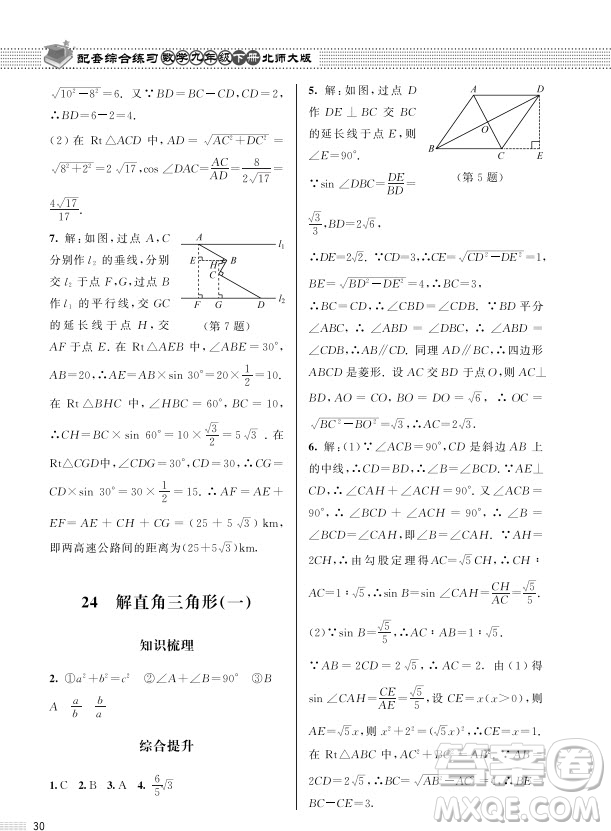 配套综合练习 数学九年级下册 北师大版
√(10²－8²)=6. 又∵BD=BC－CD,CD=2,
∴BD=6－2=4.
(2) 在 Rt△ACD 中, AD = √(AC²+DC²) =
√(8²+2²)=2√17,cos ∠DAC=AC/AD=8/(2√17)=
4√17/17.
7. 解:如图,过点 A,C
分别作 l₂ 的垂线,分别
交 l₂ 于点 F,G,过点 B
作 l₁ 的平行线,交 GC
的延长线于点 H,交
AF 于点 E. 在 Rt△AEB 中, ∠ABE=30°,
AB=20,∴AE=AB×sin 30°=20×1/2=10.
在 Rt△BHC 中, ∠HBC=60°,BC=10,
∴CH=BC× sin 60°=10×√3/2=5√3. 在
Rt△CGD中,∠CDG=30°,CD=30,∴CG=
CD×sin 30°=30×1/2=15. ∴AF=AE+
EF=AE+CH+CG=(25+5√3)km,
即两高速公路间的距离为(25+5√3)km.
A
l₁
E
H
B
C
F
G
D
l₂
(第 7 题)
24 解直角三角形(一)
知识梳理
2. ①a²+b²=c² ②∠A+∠B=90° ③B
A a/b b/a
综合提升
1. C 2. B 3. A 4. 6/5√3
5. 解:如图,过点 D
作 DE⊥BC 交 BC
的延长线于点 E,则
∠E=90°.
∵sin ∠DBC=DE/BD=
√3/3,BD=2√6,
A
D
O
B
C
E
(第 5 题)
∴DE=2√2. ∵CD=3,∴CE=√(CD²－DE²)=1.
BE=√(BD²－DE²)=4,∴BC=3,
∴BC=CD,∴∠CBD=∠CDB. ∵BD平分
∠ABC, ∴∠ABD=∠DBC, ∴∠ABD=
∠CDB. ∴AB∥CD. 同理 AD∥BC,∴四边形
ABCD是菱形. 设 AC 交 BD 于点 O,则 AC⊥
BD,AO=CO,BO=DO=√6, ∴OC=
√(BC²－BO²)=√3,∴AC=2√3.
6. 解:(1)∵∠ACB=90°,CD是斜边 AB 上
的中线,∴CD=BD,∴∠B=∠BCD. ∵AE⊥
CD,∴∠CAH+∠ACH=90°. 又∠ACB=
90°, ∴∠BCD+∠ACH=90°, ∴∠B=
∠BCD=∠CAH. ∵AH=
2CH,∴由勾股定理得 AC=√5CH. ∵CH=
1,∴AC=1×√5=√5,∴sin ∠CAH=CH/AC=√5/5.
(2)∵sin B=√5/5,∴AC∶AB=1∶√5.
∵AB=2CD=2√5,∴AC=2. ∵∠CAH=∠B,∴
sin ∠CAH=CE/AE=√5/5. 设CE=x(x>0),则
AE=√5x,则 x²+2²=(√5x)²,∴CE=x=1.
在 Rt△ABC 中, AC=2, AB=2√5, ∴BC=4,
∴BE=BC－CE=3.
30